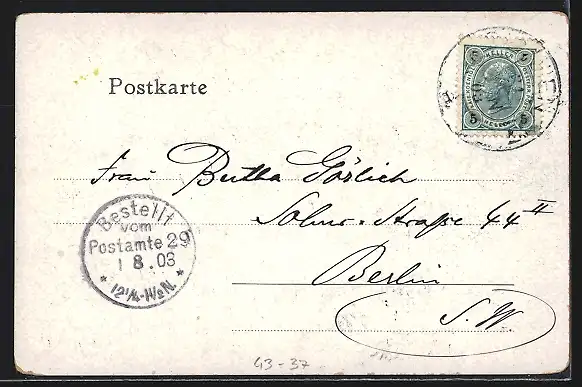 Postkarte
HELLER
5 5
Frau Bertha Görlich
Solms-Straße 44 II
Berlin
S. W
Bestellt
vom
Postamte 29
1 8.03
12¼-1½N.
43-37